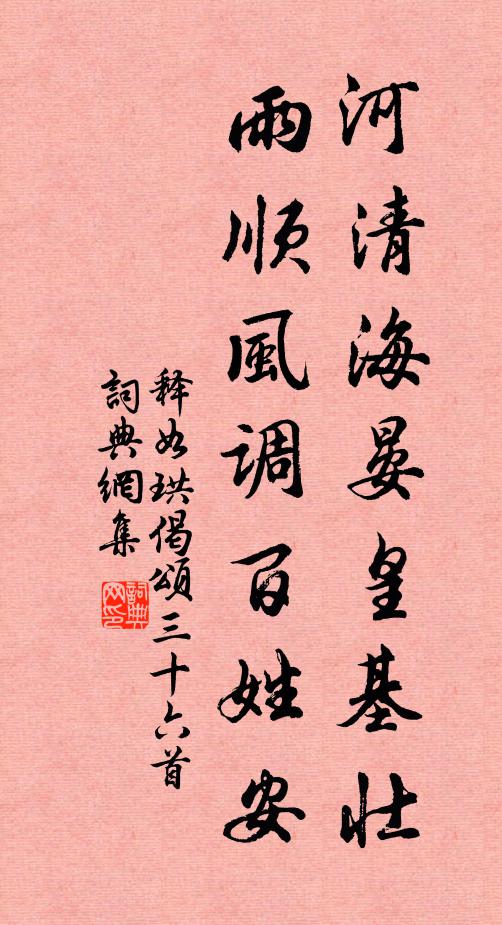 河清海晏皇基壮
雨順風調百姓安
释如珙偈頌三十六首
詞典網集
詞典
网印